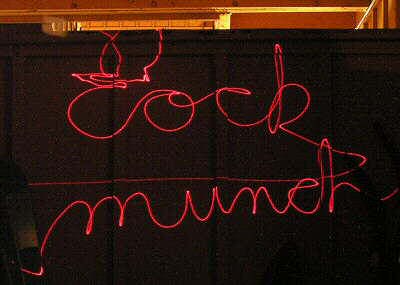 Cock
munch